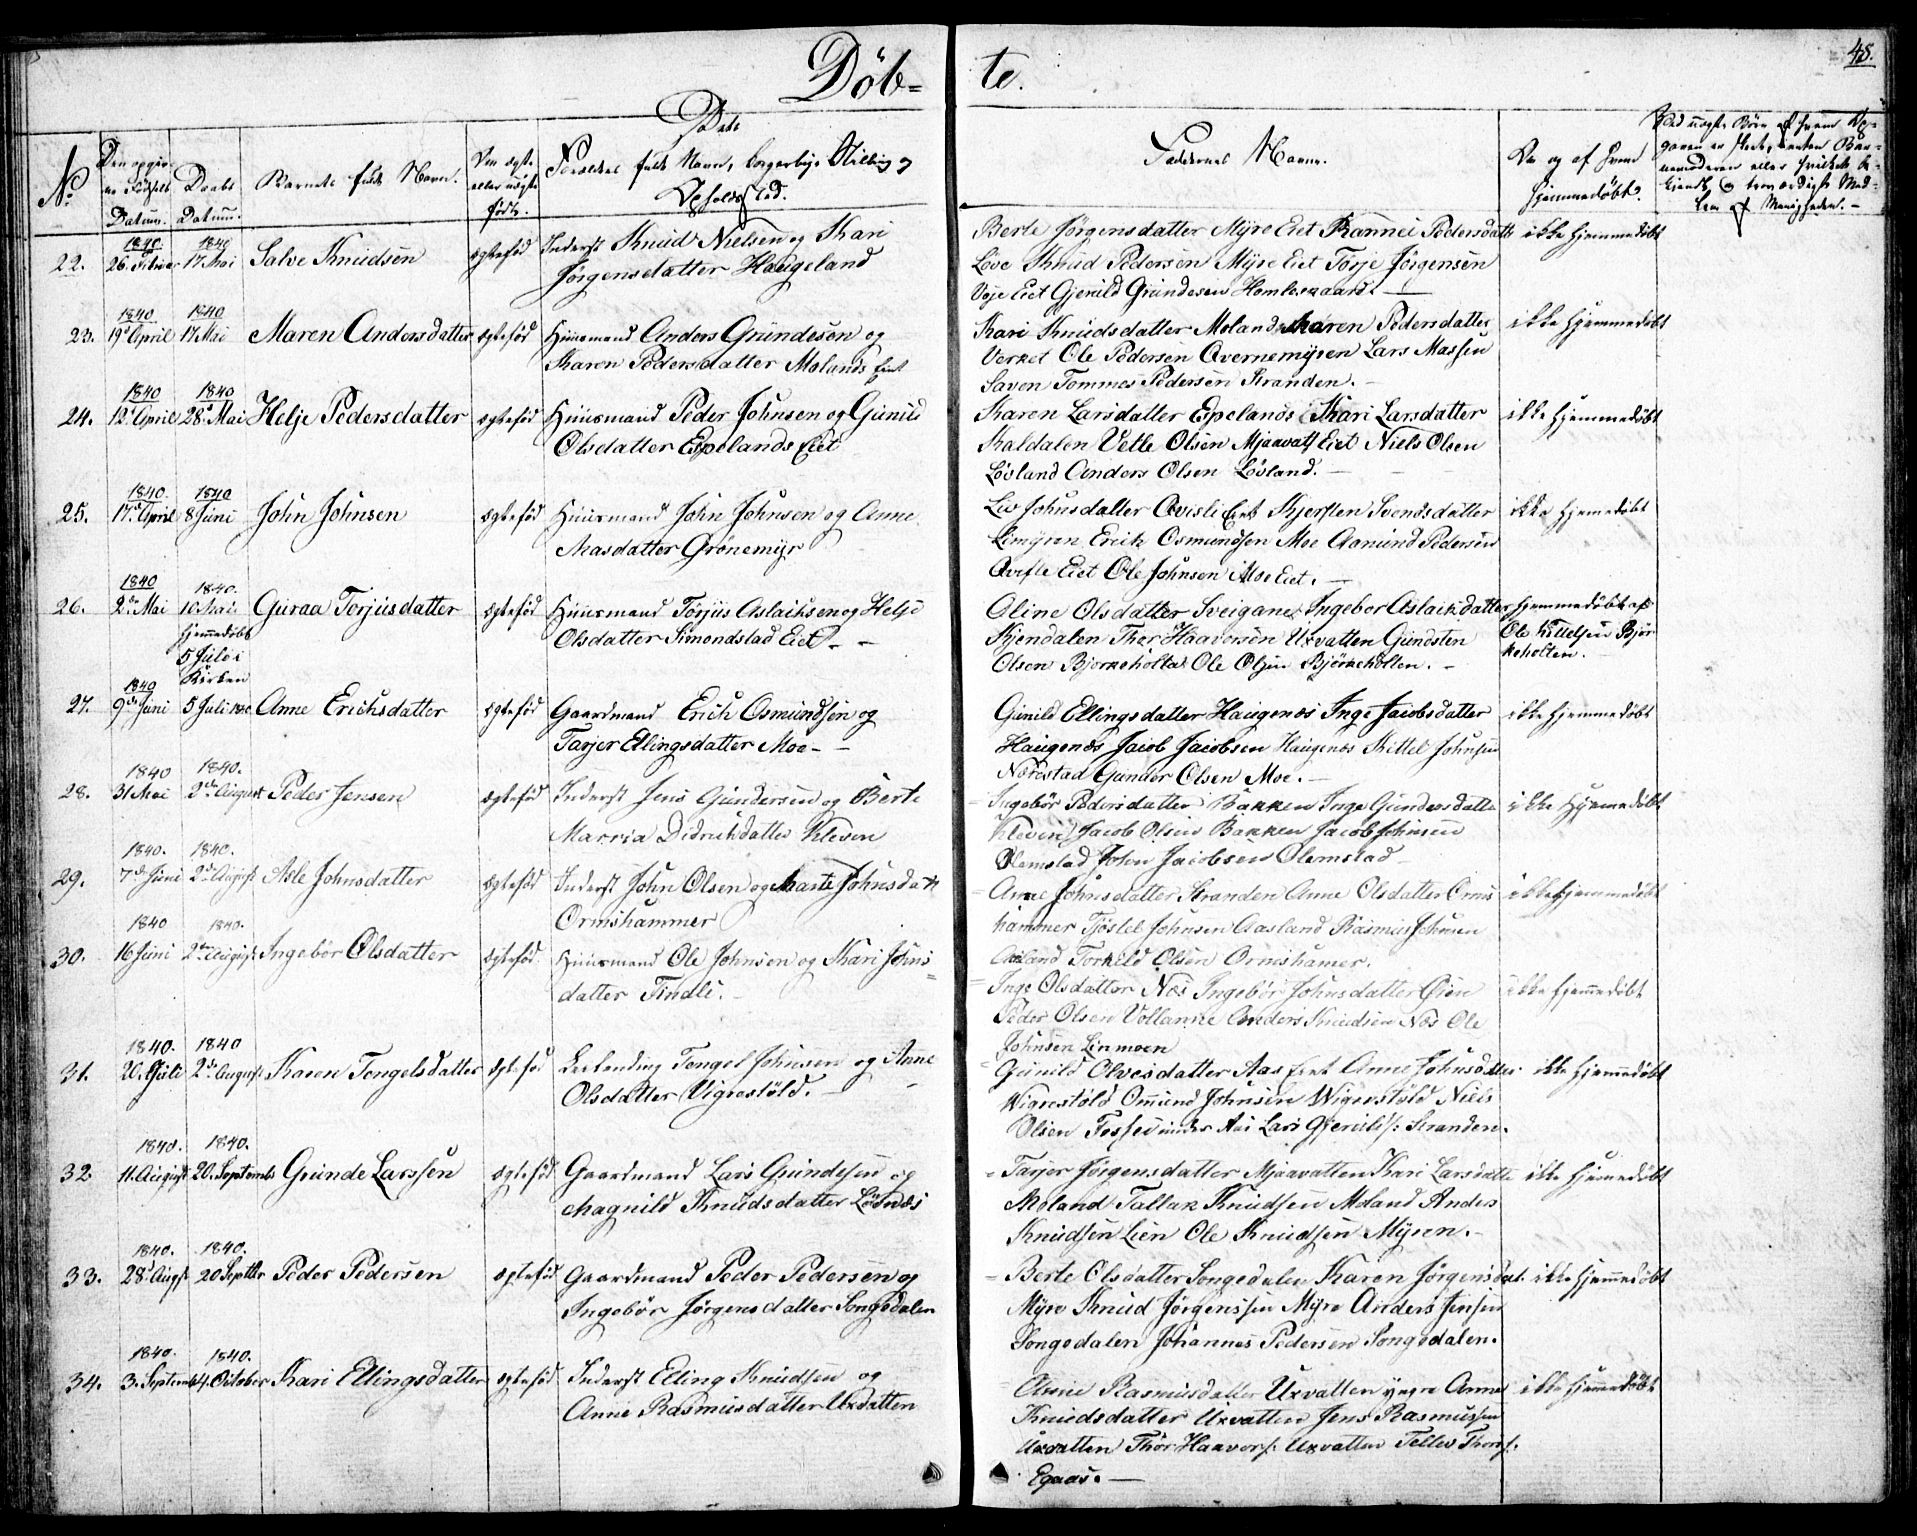 Døb=
te.
48.
No
Den opgiv-
ne Fødsels
Datum.
Daabs
Datum.
Barnets fulde Navn.
Om ægte
eller uægte
født.
Forældres fulde Navn, Borgerlige Stilling og
Opholds Sted.
Faddernes Navne.
Om og af hvem
hjemmedøbt.
22.
1840
26 Februar
1840
17 Mai
Salve Knudsen
ægtefød
Inderst Knud Nielsen og Kari
Jørgensdatter Haugeland
Berte Jørgensdatter Myre Eiet Rannei Pedersdatter
Løve Knud Pedersen Myre Eiet Torje Jørgensen
Voje Eiet Gjeruld Gundesen Homleskaard. —
ikke Hjemmedøbt
23.
1840
19de April
1840
17 Mai
Maren Andersdatter
ægtefød
Huusmand Anders Gundesen og
Karen Pedersdatter Molands Eiet
Kari Knudsdatter Moland Maren Pedersdatter
Verket Ole Pedersen Qvernemyren Lars Massen
Saven Tommes Pedersen Stranden. —
ikke Hjemmedøbt
24.
1840
12te April
1840
28de Mai
Helje Pedersdatter
ægtefød
Huusmand Peder Johnsen og Gunild
Olsdatter Espelands Eiet
Karen Larsdatter Espelands Kari Larsdatter
Kaldalen Vetle Olsen Mjaavats Eiet Niels Olsen
Løvland Anders Olsen Løvland. —
ikke Hjemmedøbt
25.
1840.
17de April
1840
8 Juni
John Johnsen
ægtefød
Huusmand John Johnsen og Anne
Aasdatter Grønemyr
Liv Johnsdatter Qvisli Eiet Kjersten Svendsdatter
Limyren Erich Osmundsen Moe Aamund Pedersen
Qvisle Eiet Ole Johnsen Moe Eiet. —
ikke Hjemedøbt
26.
1840
2den Mai
1840.
10 Mai
hjemmedøbt
5 Juli i
Kirken
Guraa Torjusdatter
ægtefød
Huusmand Torjus Aslachsen og Helje
Olsdatter Simondstad Eiet. — —
Oline Olsdatter Sveigane Ingebor Aslachsdatter
Kjendalen Thor Haavorsen Uxvatten Gundsten
Olsen Bjorkeholte Ole Olsen Bjørkeholten. —
Hjemmedøbt af
Ole Kittelsen Bjør
keholten.
27.
1840
9de Juni
5 Juli 1840
Anne Erichsdatter
ægtefød
Gaardmand Erich Osmundsen og
Tarjer Ellingsdatter Moe — —
Gunild Ellingsdatter Haugenæs Inge Jacobsdatter
Haugenæs Jacob Jacobsen Haugenæs Kittel Johnsen
Norestad Gunder Olsen Moe. —
ikke Hjemmedøbt
28.
1840
31 Mai
1840.
2den August
Peder Jensen
ægtefød
Inderst Jens Gundersen og Berte
Marria Didrichdatter Kleven
= Ingebør Pedersdatter Bakken Inge Gundersdatter
Kleven Jacob Olsen Bakken Jacob Johnsen
Olemstad John Jacobsen Olemstad —
ikke Hjemmedøbt
29.
1840.
7de Juni
1840.
2den August
Asle Johnsdatter
ægtefød
Inderst John Olsen og Marte Johnsdatt
Ormshammer
= Anne Johnsdatter Stranden Anne Olsdatter Orms
hammer Tjøstel Johnsen Aasland Rasmus Johnsen
Aasland Torkild Olsen Ormshamer.
ikke Hjemmedøbt
30.
1840
16 Juni
1840.
2den August
Ingebør Olsdatter
ægtefød.
Huusmand Ole Johnsen og Kari Johns
=
datter Findli. —
= Inge Olsdatter Næs Ingebør Johnsdatter Øien
Peder Olsen Vollanne Anders Knudsen Næs Ole
Johnsen Linmoen
ikke hjemmedøbt
31.
1840.
20. Juli
1840
2den August
Karen Tengelsdatter
ægtefød
Leilending Tengel Johnsen og Anne
Olsdatter Vigrestøld. —
= Gunild Olvesdatter Aas Eiet Anne Johnsdatter
Wigrestøld Omund Johnsen Wigrestøld Niels
Olsen Fosse under Aas Lars Gjeruld /: Stranden.
ikke Hjemmedøbt
32
1840.
11. August
1840.
20. Septembr
Gunde Larssen
ægtefød
Gaardmand Lars Gundesen og
Magnild Knudsdatter Lødnæs
= Tarjer Jørgensdatter Mjaavatten Kari Larsdatte
Moland Tallak Knudsen Moland Anders
Knudsen Lien Ole Knudsen Myren. —
ikke Hjemmedøbt
33.
1840.
28de Augst
1840.
20 Septbr
Peder Pedersen
ægtefød
Gaardmand Peder Pedersen og
Ingebør Jørgensdatter Songedalen
= Berte Olsdatter Songedalen Karen Jørgensdat.
Myre Knud Jørgenssen Myre Anders Jensen
Songedalen Johannes Pedersen Songedalen.
ikke Hjemmedøbt
34.
1840.
3. Septemb
1840.
4. October
Kari Ellingsdatter
ægtefød
Inderst Elling Knudsen og
Anne Rasmusdatter Uxvatten
= Anne Rasmusdatter Uxvatten yngre Anne
Knudsdatter Uxvatten Jens Rasmussen
Uxvatten Thor Haavors: Uxvatten Tellev Thors:
Egaas. —
ikke Hjemmedøbt